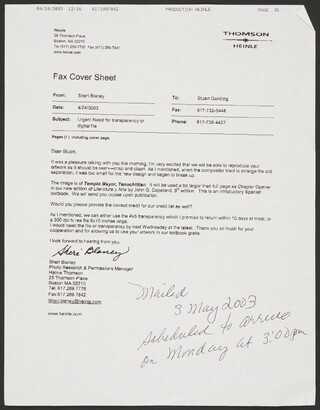 04/24/2003 12:16 6172897842 PRODUCTION HEINLE PAGE 01
Heinle
25 Thomson Place
Boston, MA 02210
Tel (617) 289-7700 Fax (617) 289-7841
www.heinle.com
THOMSON
HEINLE
Fax Cover Sheet
From: Sheri Blaney To: Stuart Gentling
Date: 4/24/2003 Fax: 817-732-5448
Subject: Urgent Need for transparency or digital file Phone: 817-738-4427
Pages (1), including cover page.
Dear Stuart,
It was a pleasure talking with you this morning. I'm very excited that we will be able to reproduce your
artwork as it should be seen—crisp and clean! As I mentioned, when the compositor tried to enlarge the old
separation, it was too small for the new design and began to break up.
The image is of Templo Mayor, Tenochtitlan. It will be used a bit larger than full page as Chapter Opener
in our new edition of Literatura y Arte by John G. Copeland, 8th edition. This is an introductory Spanish
textbook. We will send you copies upon publication.
Would you please provide the correct credit for our credit list as well?
As I mentioned, we can either use the 4x5 transparency which I promise to return within 10 days at most, or
a 300 dpi hi res file 8x10 inches large.
I would need the file or transparency by next Wednesday at the latest. Thank you so much for your
cooperation and for allowing us to use your artwork in our textbook gratis.
I look forward to hearing from you.
Sheri Blaney
Sheri Blaney
Photo Research & Permissions Manager
Heinle Thomson
25 Thomson Place
Boston MA 02210
Tel 617.289.7776
Fax 617.289.7842
Sheri.blaney@heinle.com
www.heinle.com
Mailed
3 May 2003
Scheduled to arrive
on Monday at 3:00pm